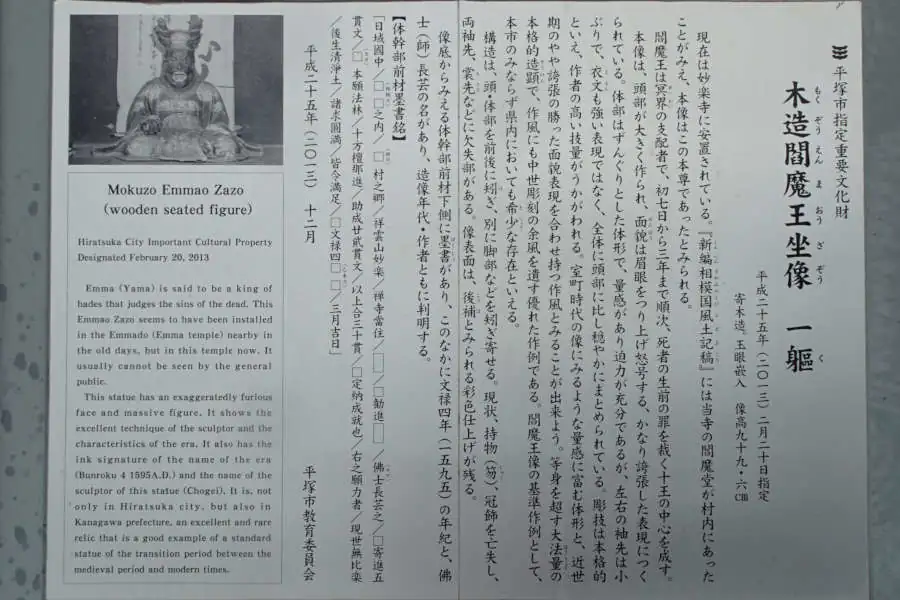 平塚市指定重要文化財
木造閻魔王坐像 一軀
もくぞうえんまおうざぞう いっく
平成二十五年(二〇一三)二月二十日指定
寄木造。玉眼嵌入 像高九十九・六㎝
現在は妙楽寺に安置されている。『新編相模国風土記稿』には当寺の閻魔堂が村内にあった
ことがみえ、本像はこの本尊であったとみられる。
閻魔王は冥界の支配者で、初七日から三年まで順次、死者の生前の罪を裁く十王の中心を成す。
本像は、頭部が大きく作られ、面貌は眉眼をつり上げ怒号する、かなり誇張した表現につく
られている。体部はずんぐりとした体形で、量感があり迫力が充分であるが、左右の袖先は小
ぶりで、衣文も強い表現ではなく、全体に頭部に比し穏やかにまとめられている。彫技は本格的
といえ、作者の高い技量がうかがわれる。室町時代の像にみるような量感に富む体形と、近世
期のやや誇張の勝った面貌表現を合わせ持つ作風とみることが出来よう。等身を超す大法量の
本格的造顕で、作風にも中世彫刻の余風を遺す優れた作例である。閻魔王像の基準作例として、
本市のみならず県内においても希少な存在といえる。
構造は、頭・体部を前後に矧ぎ、別に脚部などを矧ぎ寄せる。現状、持物(笏)、冠飾を亡失し、
両袖先、裳先などに欠失部がある。像表面は、後補とみられる彩色仕上げが残る。
像底からみえる体幹部前材下側に墨書があり、このなかに文禄四年(一五九五)の年紀と、佛
士(師)長芸の名があり、造像年代・作者ともに判明する。
【体幹部前材墨書銘】
「日域國中/□□之内/□村之郷/祥雲山妙楽/禅寺當住/□□/□勧進□□/佛士長芸之/□寄進五
貫文/□本願法林/十方檀那進/助成廿貮貫文/以上合三十貫/□定納成就也/右之願力者/現世無比楽
/後生清浄土/諸求圓満/皆令満足/□文禄四□□/三月吉日」
平成二十五年(二〇一三)十二月
平塚市教育委員会
Mokuzo Emmao Zazo
(wooden seated figure)
Hiratsuka City Important Cultural Property
Designated February 20, 2013
Emma (Yama) is said to be a king of
hades that judges the sins of the dead. This
Emmao Zazo seems to have been installed
in the Emmado (Emma temple) nearby in
the old days, but in this temple now. It
usually cannot be seen by the general
public.
This statue has an exaggeratedly furious
face and massive figure. It shows the
excellent technique of the sculptor and the
characteristics of the era. It also has the
ink signature of the name of the era
(Bunroku 4 1595A.D.) and the name of the
sculptor of this statue (Chogei). It is, not
only in Hiratsuka city, but also in
Kanagawa prefecture, an excellent and rare
relic that is a good example of a standard
statue of the transition period between the
medieval period and modern times.